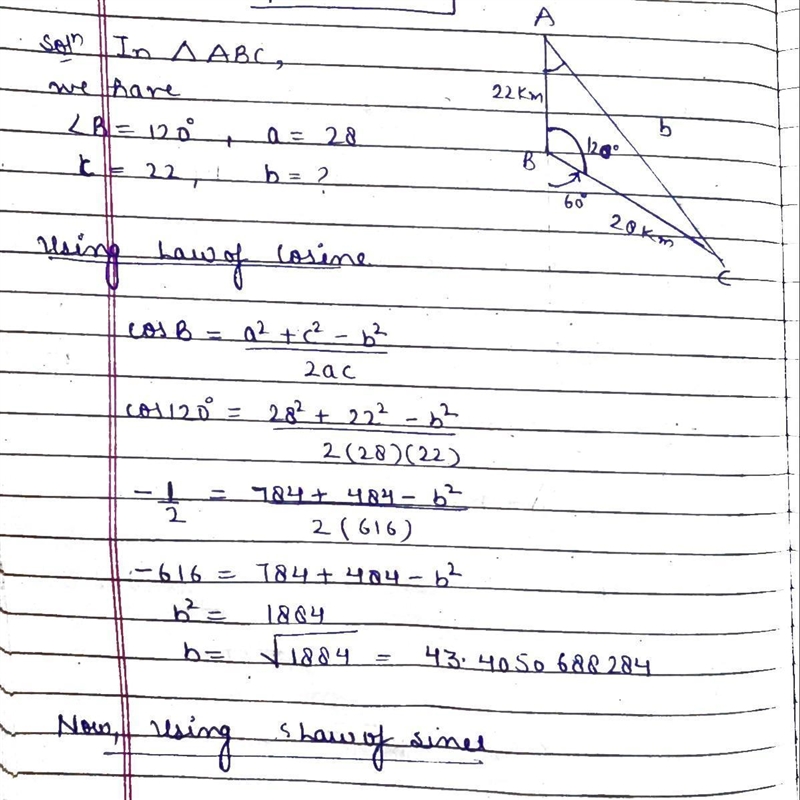 Solⁿ In △ ABC,
we have
∠B = 120°, a = 28
c = 22, b = ?
A
22 Km
b
B
120°
60°
28 Km
C
Using Law of Cosine
cosB = a² + c² − b² / 2ac
cos120° = 28² + 22² − b² / 2(28)(22)
−1/2 = 784 + 484 − b² / 2(616)
−616 = 784 + 484 − b²
b² = 1884
b = √1884 = 43.4050688284
Now, Using Law of sines